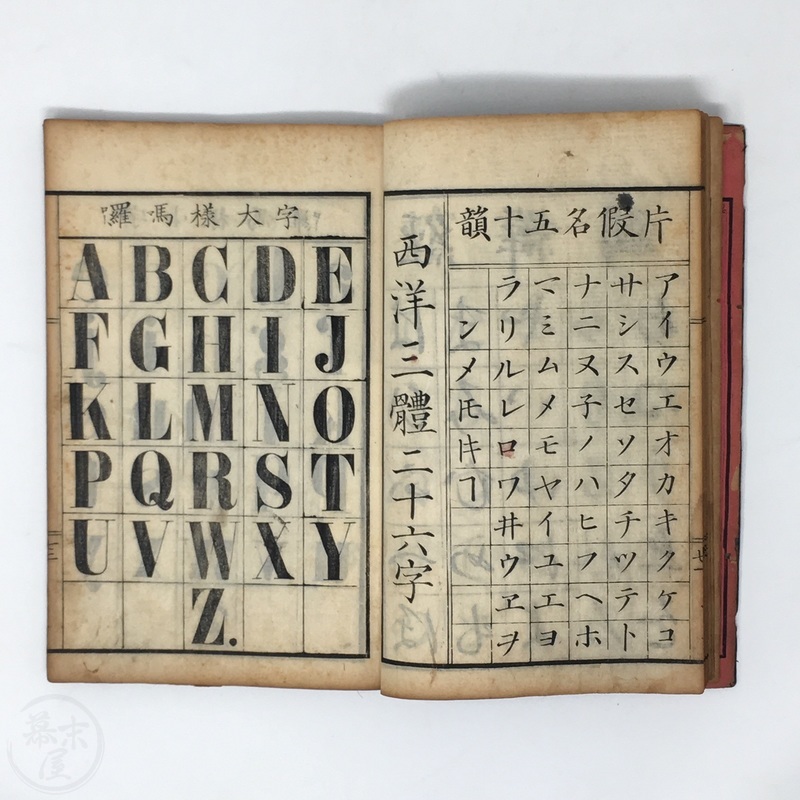 片假名五十韻
アイウエオカキクケコ
サシスセソタチツテト
ナニヌ子ノハヒフヘホ
マミムメモヤイユエヨ
ラリルレロワ井ウヱヲ
ンメ𪜈ヿ
西洋三體二十六字
囉嗎樣大字
A B C D E
F G H I J
K L M N O
P Q R S T
U V W X Y
Z.
幕末屋